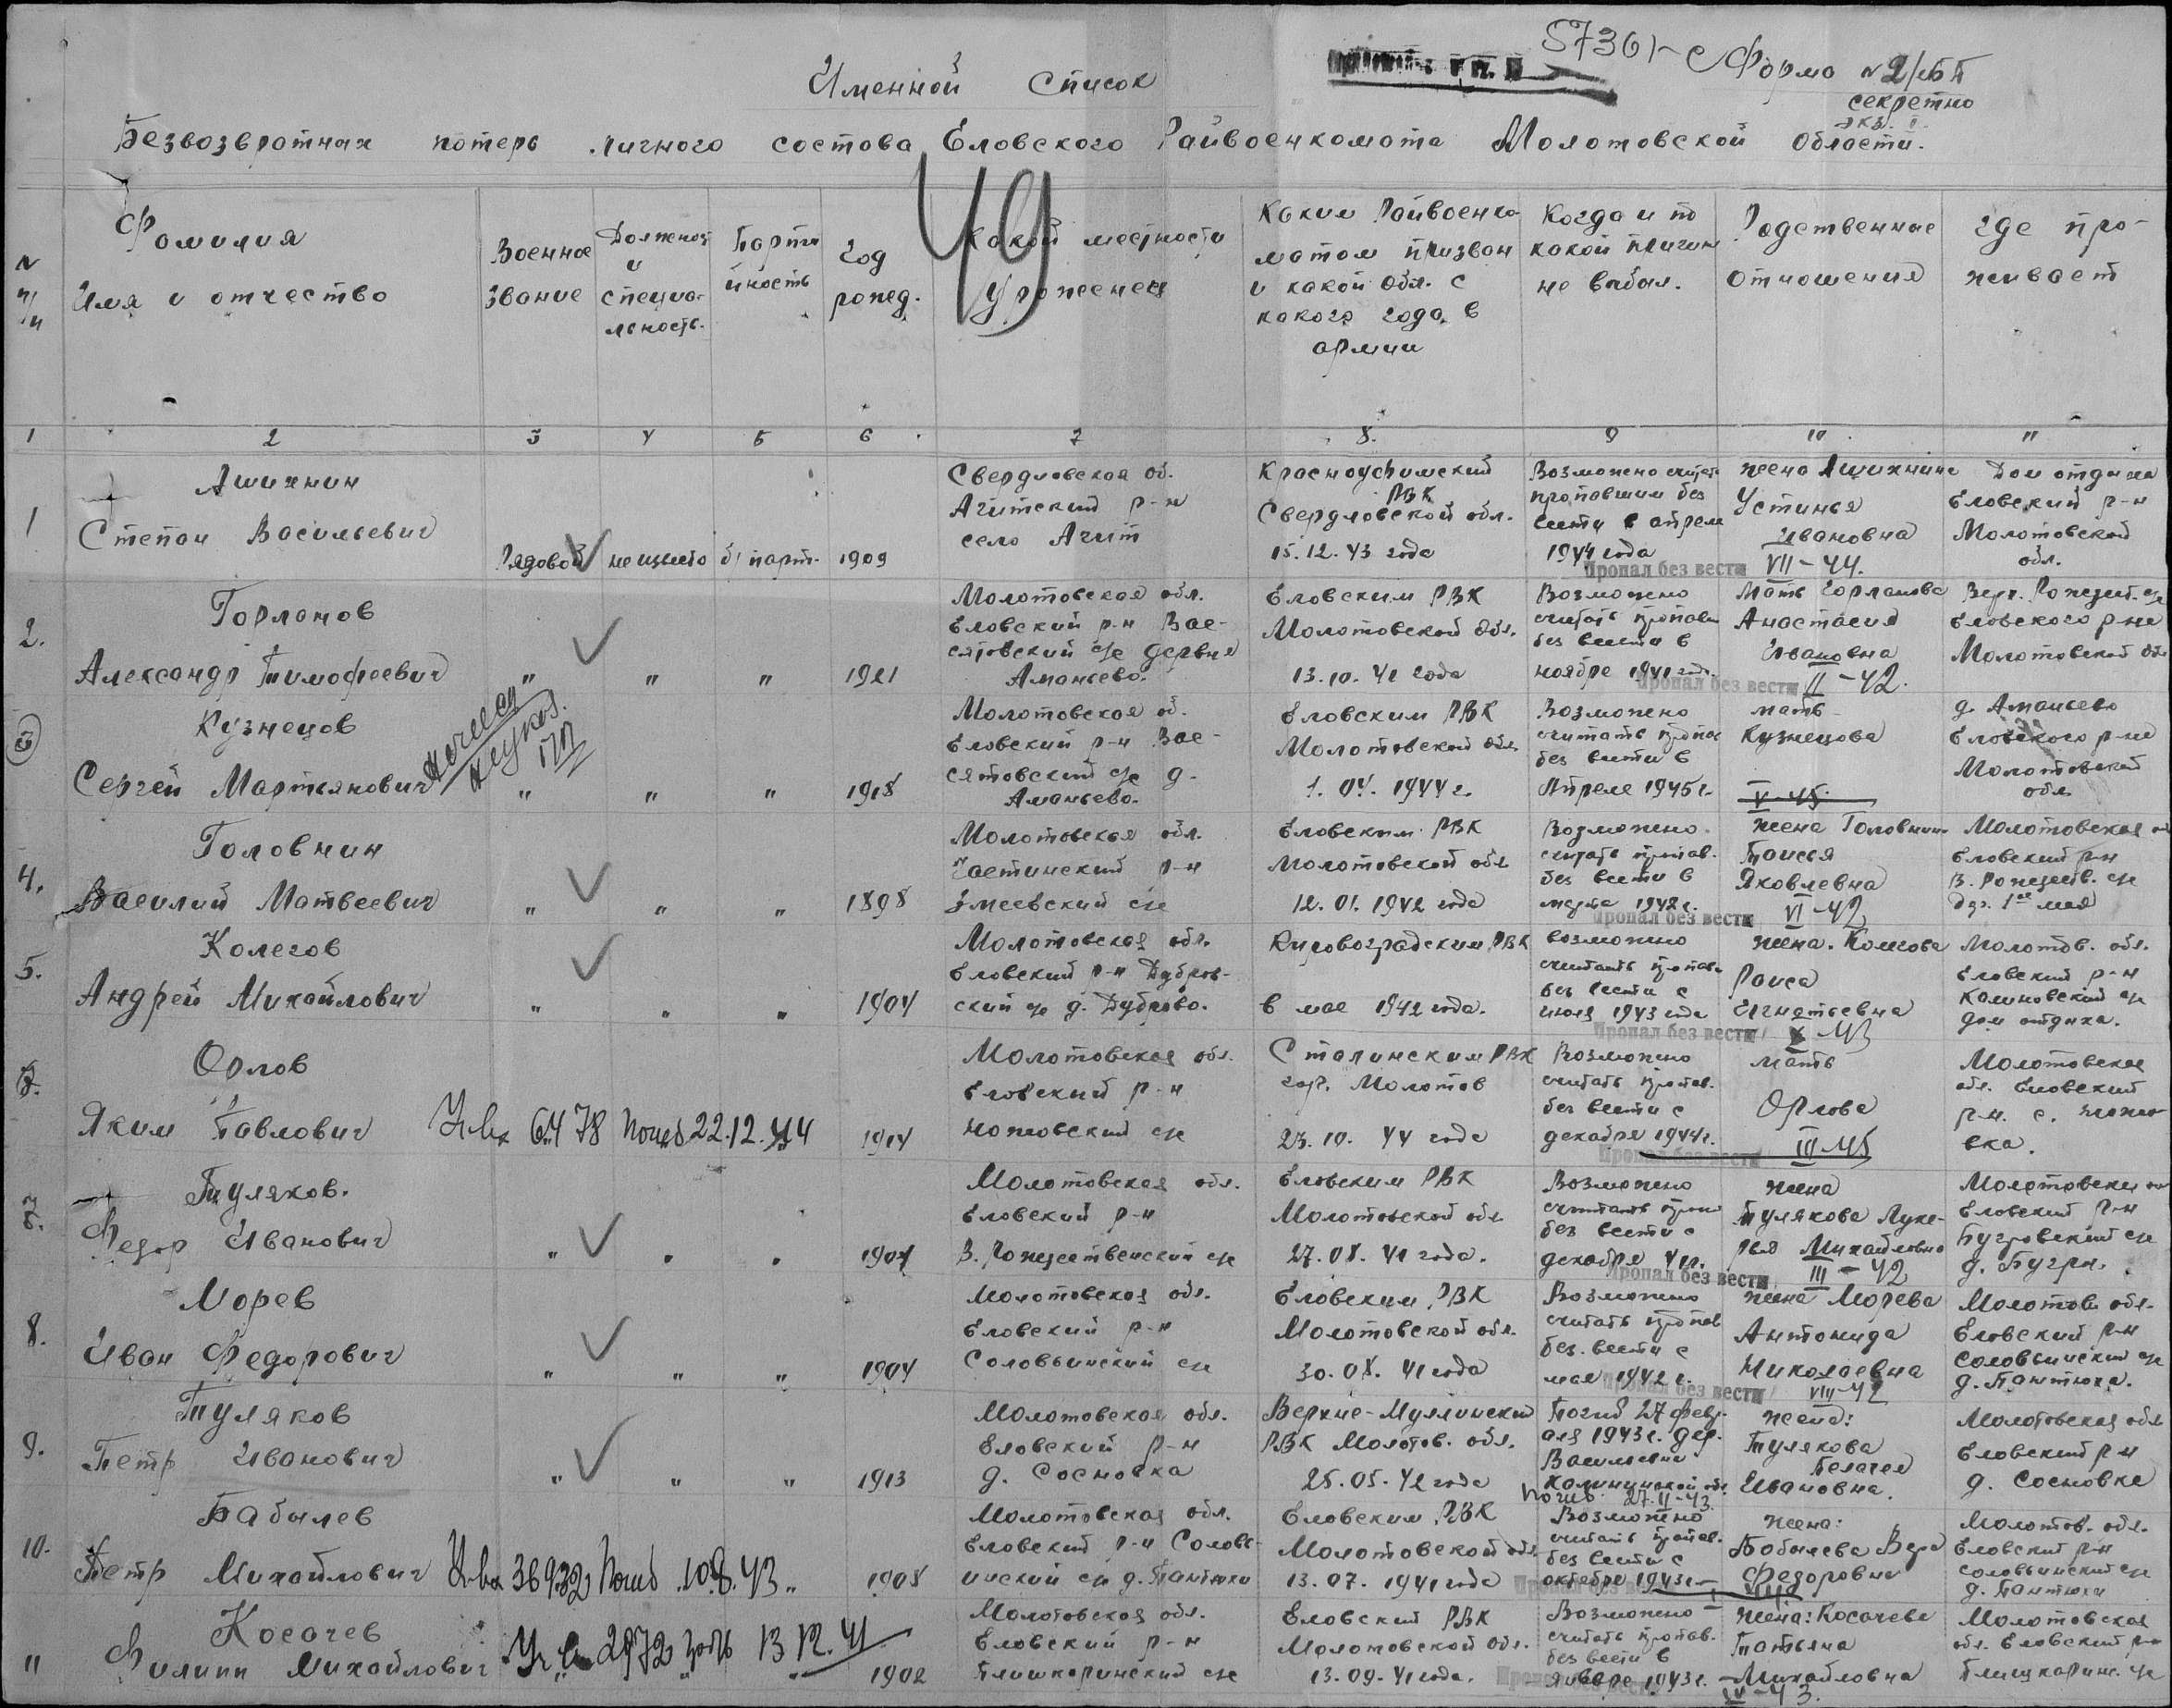 57361-с Форма №2/БП
секретно
экз.
Именной список
Безвозвратных потерь личного состава Еловского Райвоенкомата Молотовской области.
49
№ п/п
Фамилия
Имя и отчество
Военное
звание
Должност
и
специа-
льность.
Парти
йность
Год
рожд.
Какой местности
уроженец
Каким Райвоенко
матом призван
и какой обл. с
какого года в
армии
Когда и по
какой причин
не выбыл.
Родственные
отношения
где про-
живает
1 2 3 4 5 6 7 8. 9 10 11
1
Ашихнин
Степан Васильевич
Рядовой неизвестно б/парт. 1909
Свердловская об.
Ачитский р-н
село Ачит
Красноуфимский
РВК
Свердловской обл.
15.12.43 года
Возможно считать
пропавшим без
вести с апреля
1944 года
Пропал без вести
жена Ашихнина
Устинья
Ивановна
VII-44.
Дом отдыха
Еловский р-н
Молотовской
обл.
2.
Горланов
Александр Тимофеевич
" " " 1921
Молотовская обл.
Еловский р-н Вас-
сятовский с/с деревня
Ананьево.
Еловским РВК
Молотовской обл.
13.10.41 года
Возможно
считать пропавш
без вести в
ноябре 1941 года.
Пропал без вести
Мать Горланова
Анастасия
Ивановна
II-42.
Верх. Рождест. с/с
Еловского р-на
Молотовской обл
3
Кузнецов
Сергей Мартьянович
" " " 1918
Молотовская об.
Еловский р-н Вас-
сятовский с/с д.
Ананьево.
Еловским РВК
Молотовской обл
1.04.1944 г.
Возможно
считать пропа
без вести в
Апреле 1945 г.
мать
Кузнецова
V-45
д. Ананьево
Еловского р-на
Молотовской
обл.
4.
Головнин
Василий Матвеевич
" " " 1898
Молотовская обл.
Частинский р-н
Змеевский с/с
Еловским РВК
Молотовской обл
12.01.1942 года
Возможно
считать пропав.
без вести в
марте 1942 г.
Пропал без вести
жена Головнин
Таисья
Яковлевна
VI-42
Молотовская об
Еловский р-н
В. Рождеств. с/с
дер. 1ое мая
5.
Колегов
Андрей Михайлович
" " " 1904
Молотовская обл.
Еловский р-н Дубров-
ский с/с д. Дуброво.
Кировоградским РВК
в мае 1942 года.
возможно
считать пропав
без вести с
июля 1943 года
Пропал без вести
жена. Колегова
Раиса
Игнатьевна
X 43
Молотов. обл.
Еловский р-н
Калиновский с/с
дом отдыха.
6.
Орлов
Яким Павлович
Уч. вх 6478 погиб 22.12.44
1914
Молотовская обл.
Еловский р-н
Ножовский с/с
Сталинским РВК
гор. Молотов
23.10.44 года
Возможно
считать пропав.
без вести с
декабря 1944 г.
Пропал без вести
мать
Орлова
III 45
Молотовская
обл. Еловский
р-н. с.
7.
Туляков.
Федор Иванович
" " " 1907
Молотовская обл.
Еловский р-н
В. Рождественский с/с
Еловским РВК
Молотовской обл
27.08.41 года.
Возможно
считать проп
без вести с
декабря 41 г.
Пропал без вести
жена
Тулякова Луке-
рья Михайловна
III-42
Молотовская об
Еловский р-н
Бугровский с/с
д. Бугры.
8.
Морев
Иван Федорович
" " " 1904
Молотовская обл.
Еловский р-н
Соловьинский с/с
Еловским РВК
Молотовской обл.
30.08.41 года
Возможно
считать пропав
без вести с
мая 1942 г.
Пропал без вести
жена Морева
Антонида
Николаевна
VIII-42
Молотов обл.
Еловский р-н
Соловьинский с/с
д. Пантюха.
9.
Туляков
Петр Иванович
" " " 1913
Молотовская обл.
Еловский р-н
д. Сосновка
Верхне-Муллинский
РВК Молотов. обл.
25.05.42 года
Погиб 27 февр-
аля 1943 г. дер.
Васильевна
Калининской обл.
погиб 27.II-43.
жена:
Тулякова
Пелагея
Ивановна.
Молотовская обл
Еловский р-н
д. Сосновка
10.
Бабылев
Петр Михайлович
36932 погиб 10.8.43.
1908
Молотовская обл.
Еловский р-н Соловь-
инский с/с д. Пантюхи
Еловским РВК
Молотовской обл
13.07.1941 года
Возможно
считать пропав.
без вести с
октября 1943 г.
жена:
Бабылева Вера
Федоровна
Молотов. обл.
Еловский р-н
Соловьинский с/с
д. Пантюхи
11
Косачев
Филипп Михайлович
2972 13.12.41
1902
Молотовская обл.
Еловский р-н
Плишкаринский с/с
Еловский РВК
Молотовской обл.
13.09.41 года.
Возможно
считать пропав.
без вести в
январе 1943 г.
жена: Косачева
Татьяна
Михайловна
IV-43.
Молотовская
обл. Еловский р-н
Плишкарин. с/с